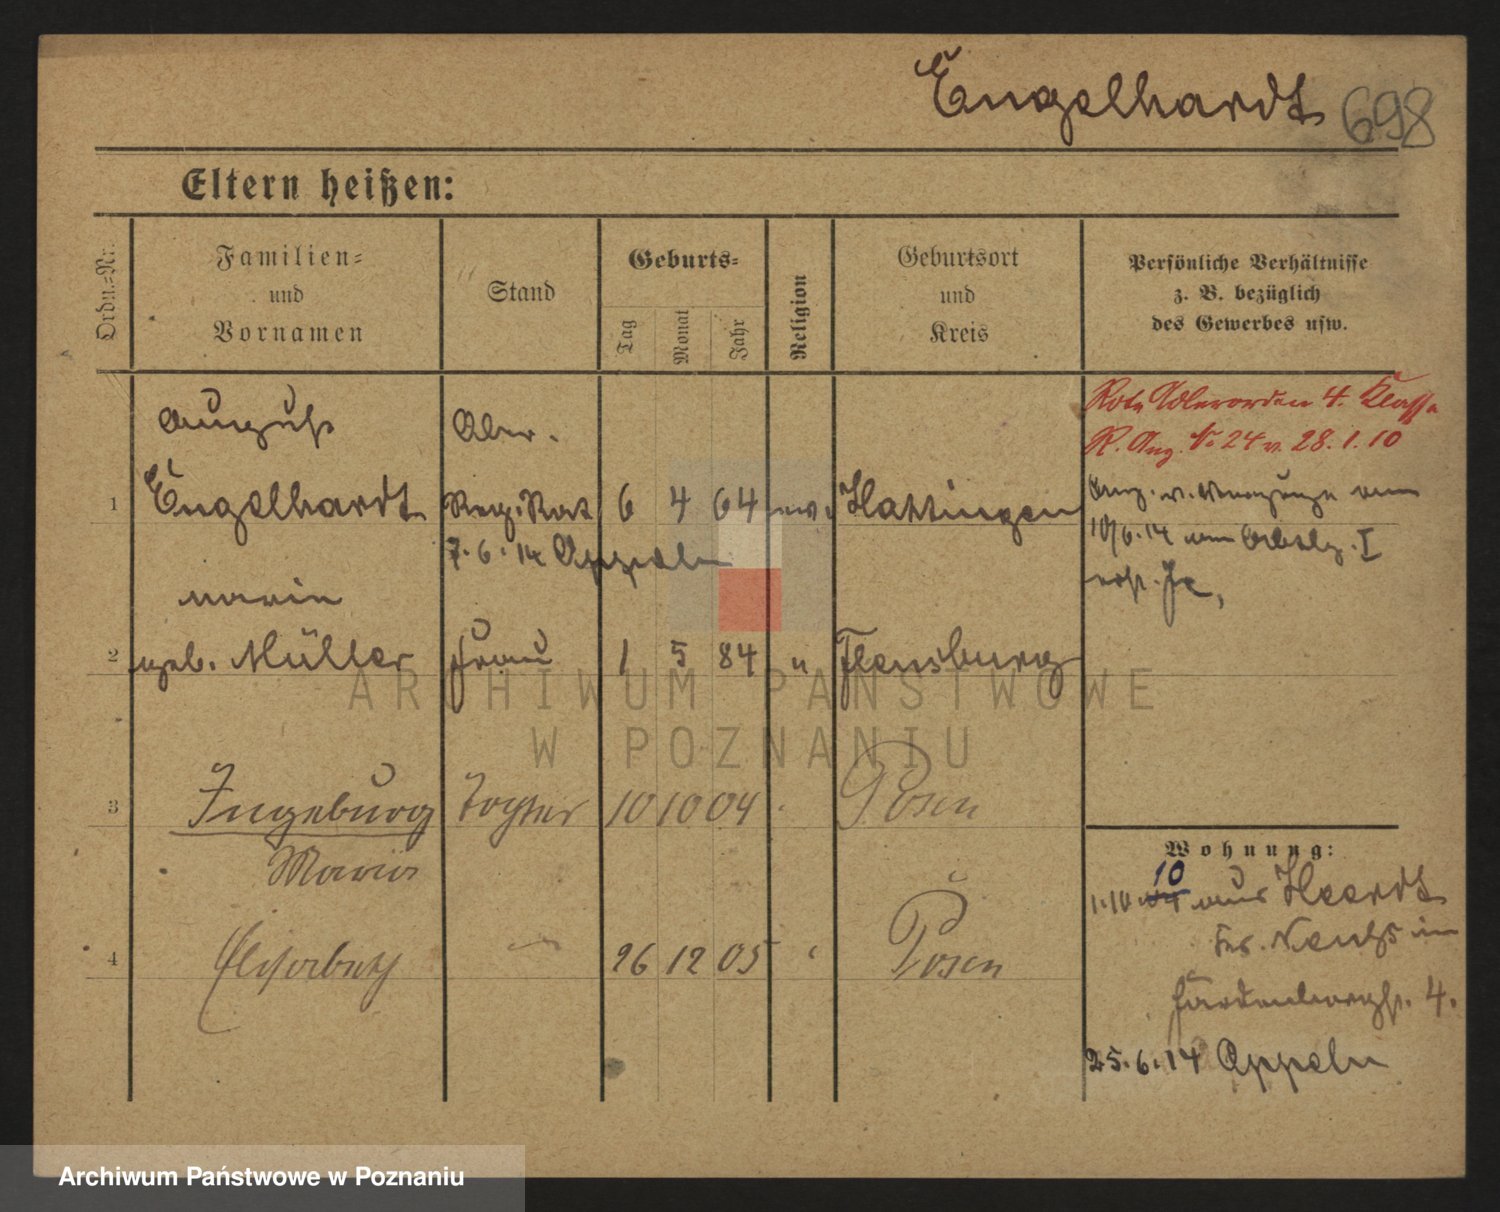 Engelhardt 698
Eltern heißen:
Ordn.-Nr.
Familien-
und
Vornamen
Stand
Geburts-
Tag
Monat
Jahr
Religion
Geburtsort
und
Kreis
Persönliche Verhältnisse
z. B. bezüglich
des Gewerbes usw.
Rote Adlerorden 4. Klasse
R. Anz. No 24 v. 28.1.10
August Ober-
1 Engelhardt Reg. Rat 6 4 64 ev. Hattingen
7.6.14 Oppeln
10/6.14 I
Maria
2 geb. Müller Frau 1 5 84 " Flensburg
ARCHIWUM PAŃSTWOWE
W POZNANIU
3 Ingeburg Tochter 10 10 04 Posen
Maria
4 Elisabeth 26 12 05 Posen
Wohnung:
10
1.10.04 aus Heerdt
Krs. Neuss in
4.
25.6.14 Oppeln
Archiwum Państwowe w Poznaniu